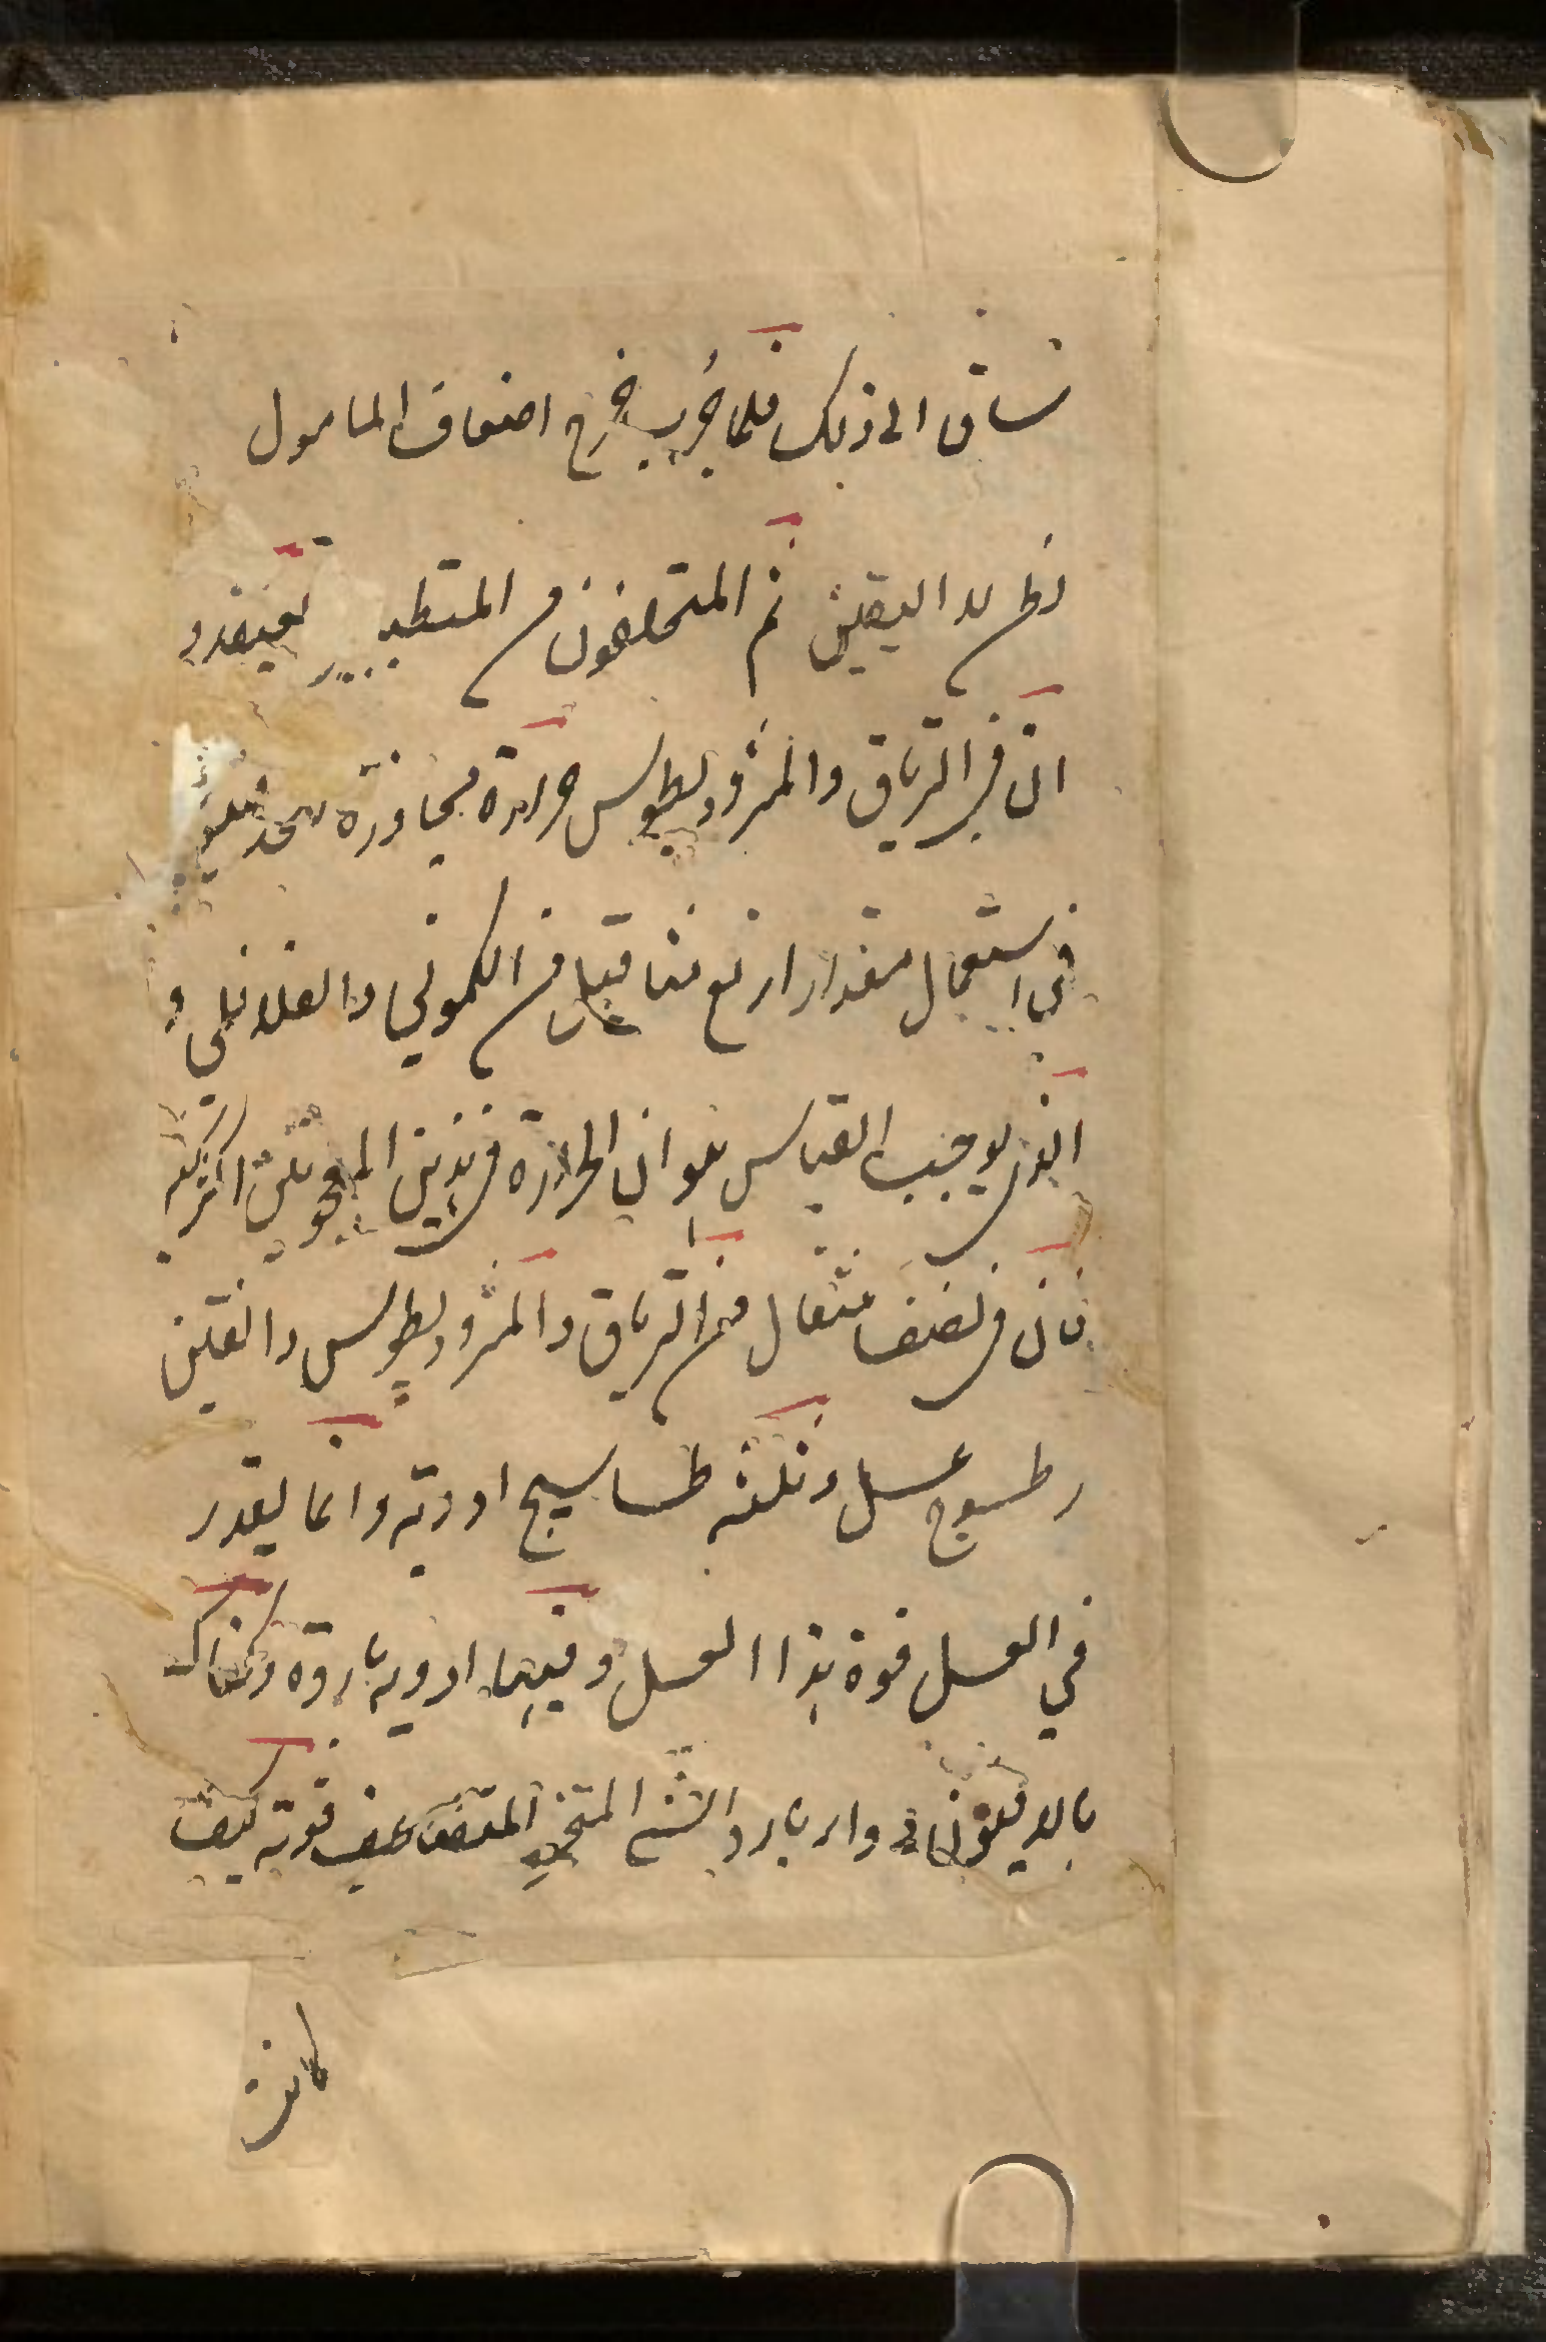 نساق الى ذلك فلما جُرب خرج اضعاف المامول
نظن به اليقين ثم المتخلفون من المتطببين يعتقدون
ان في الترياق والمثروديطوس حرارة مجاوزة للحد
في استعمال مقدار اربع مثاقيل من الكموني والفلافلي و
الذي يوجب القياس هو ان الحرارة في هذين المعجونين اكثر
فان في نصف مثقال من الترياق والمثروديطوس دانقين
وطسوج عسل وثلثه طساسيج ادوية وانما يقدر
في العسل قوة هذا العسل وفيها ادوية باردة وكذلك
بالافيون دواء بارد الشئ المتخذ قوته كيف
كانت